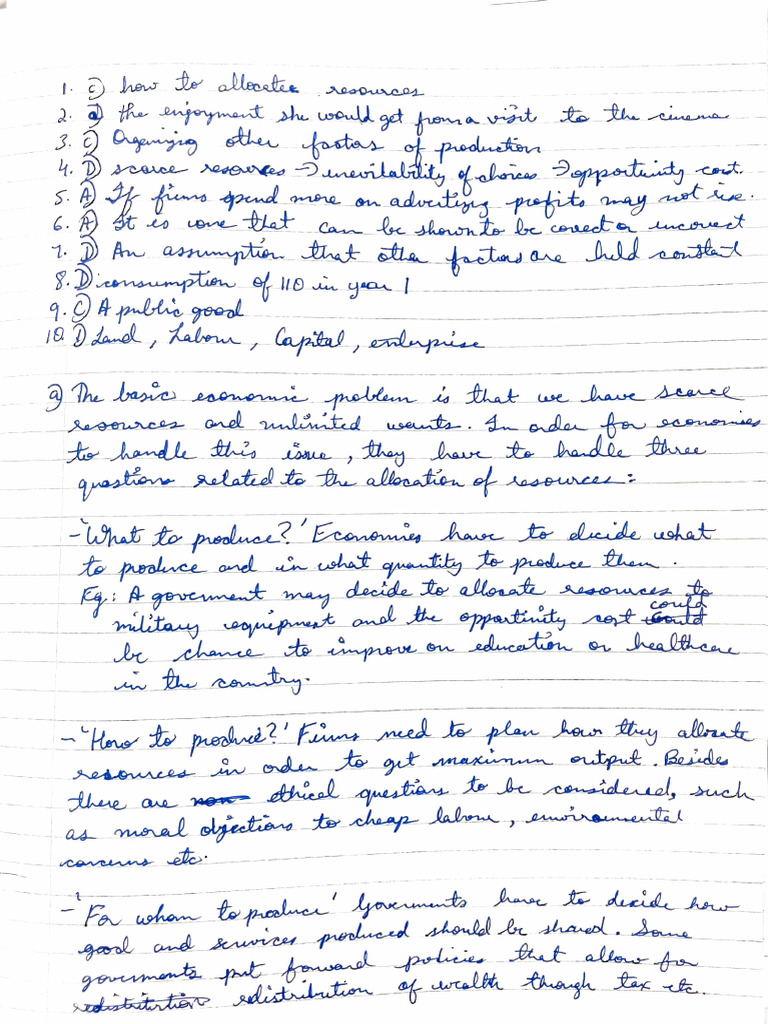 1. c) how to allocate resources
2. a) the enjoyment she would get from a visit to the cinema
3. C) Organizing other factors of production
4. D) scarce resources → inevitability of choices → opportunity cost.
5. A) If firms spend more on advertizing profits may not rise.
6. A) It is one that can be shown to be correct or incorrect
7. D) An assumption that other factors are held constant
8. D) consumption of 110 in year 1
9. C) A public good
10. D) Land, Labour, Capital, enterprise
a) The basic economic problem is that we have scarce
resources and unlimited wants. In order for economies
to handle this issue, they have to handle three
questions related to the allocation of resources:
- 'What to produce?' Economies have to decide what
to produce and in what quantity to produce them.
Eg.: A goverment may decide to allocate resources to
military equipment and the opportinity cost could
be chance to improve on education or healthcare
in the country.
- 'How to produce?' Firms need to plan how they allocate
resources in order to get maximum output. Besides
there are ethical questions to be considered, such
as moral objections to cheap labour, enviromental
concerns etc.
- 'For whom to produce' Goverments have to decide how
good and services produced should be shared. Some
goverments put forward policies that allow for
redistribution of wealth though tax etc.